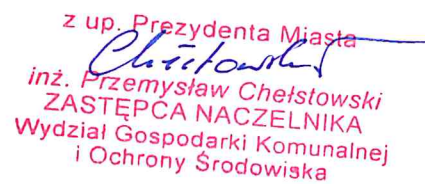 z up. Prezydenta Miasta
Chełstowski
inż. Przemysław Chełstowski
ZASTĘPCA NACZELNIKA
Wydział Gospodarki Komunalnej
i Ochrony Środowiska